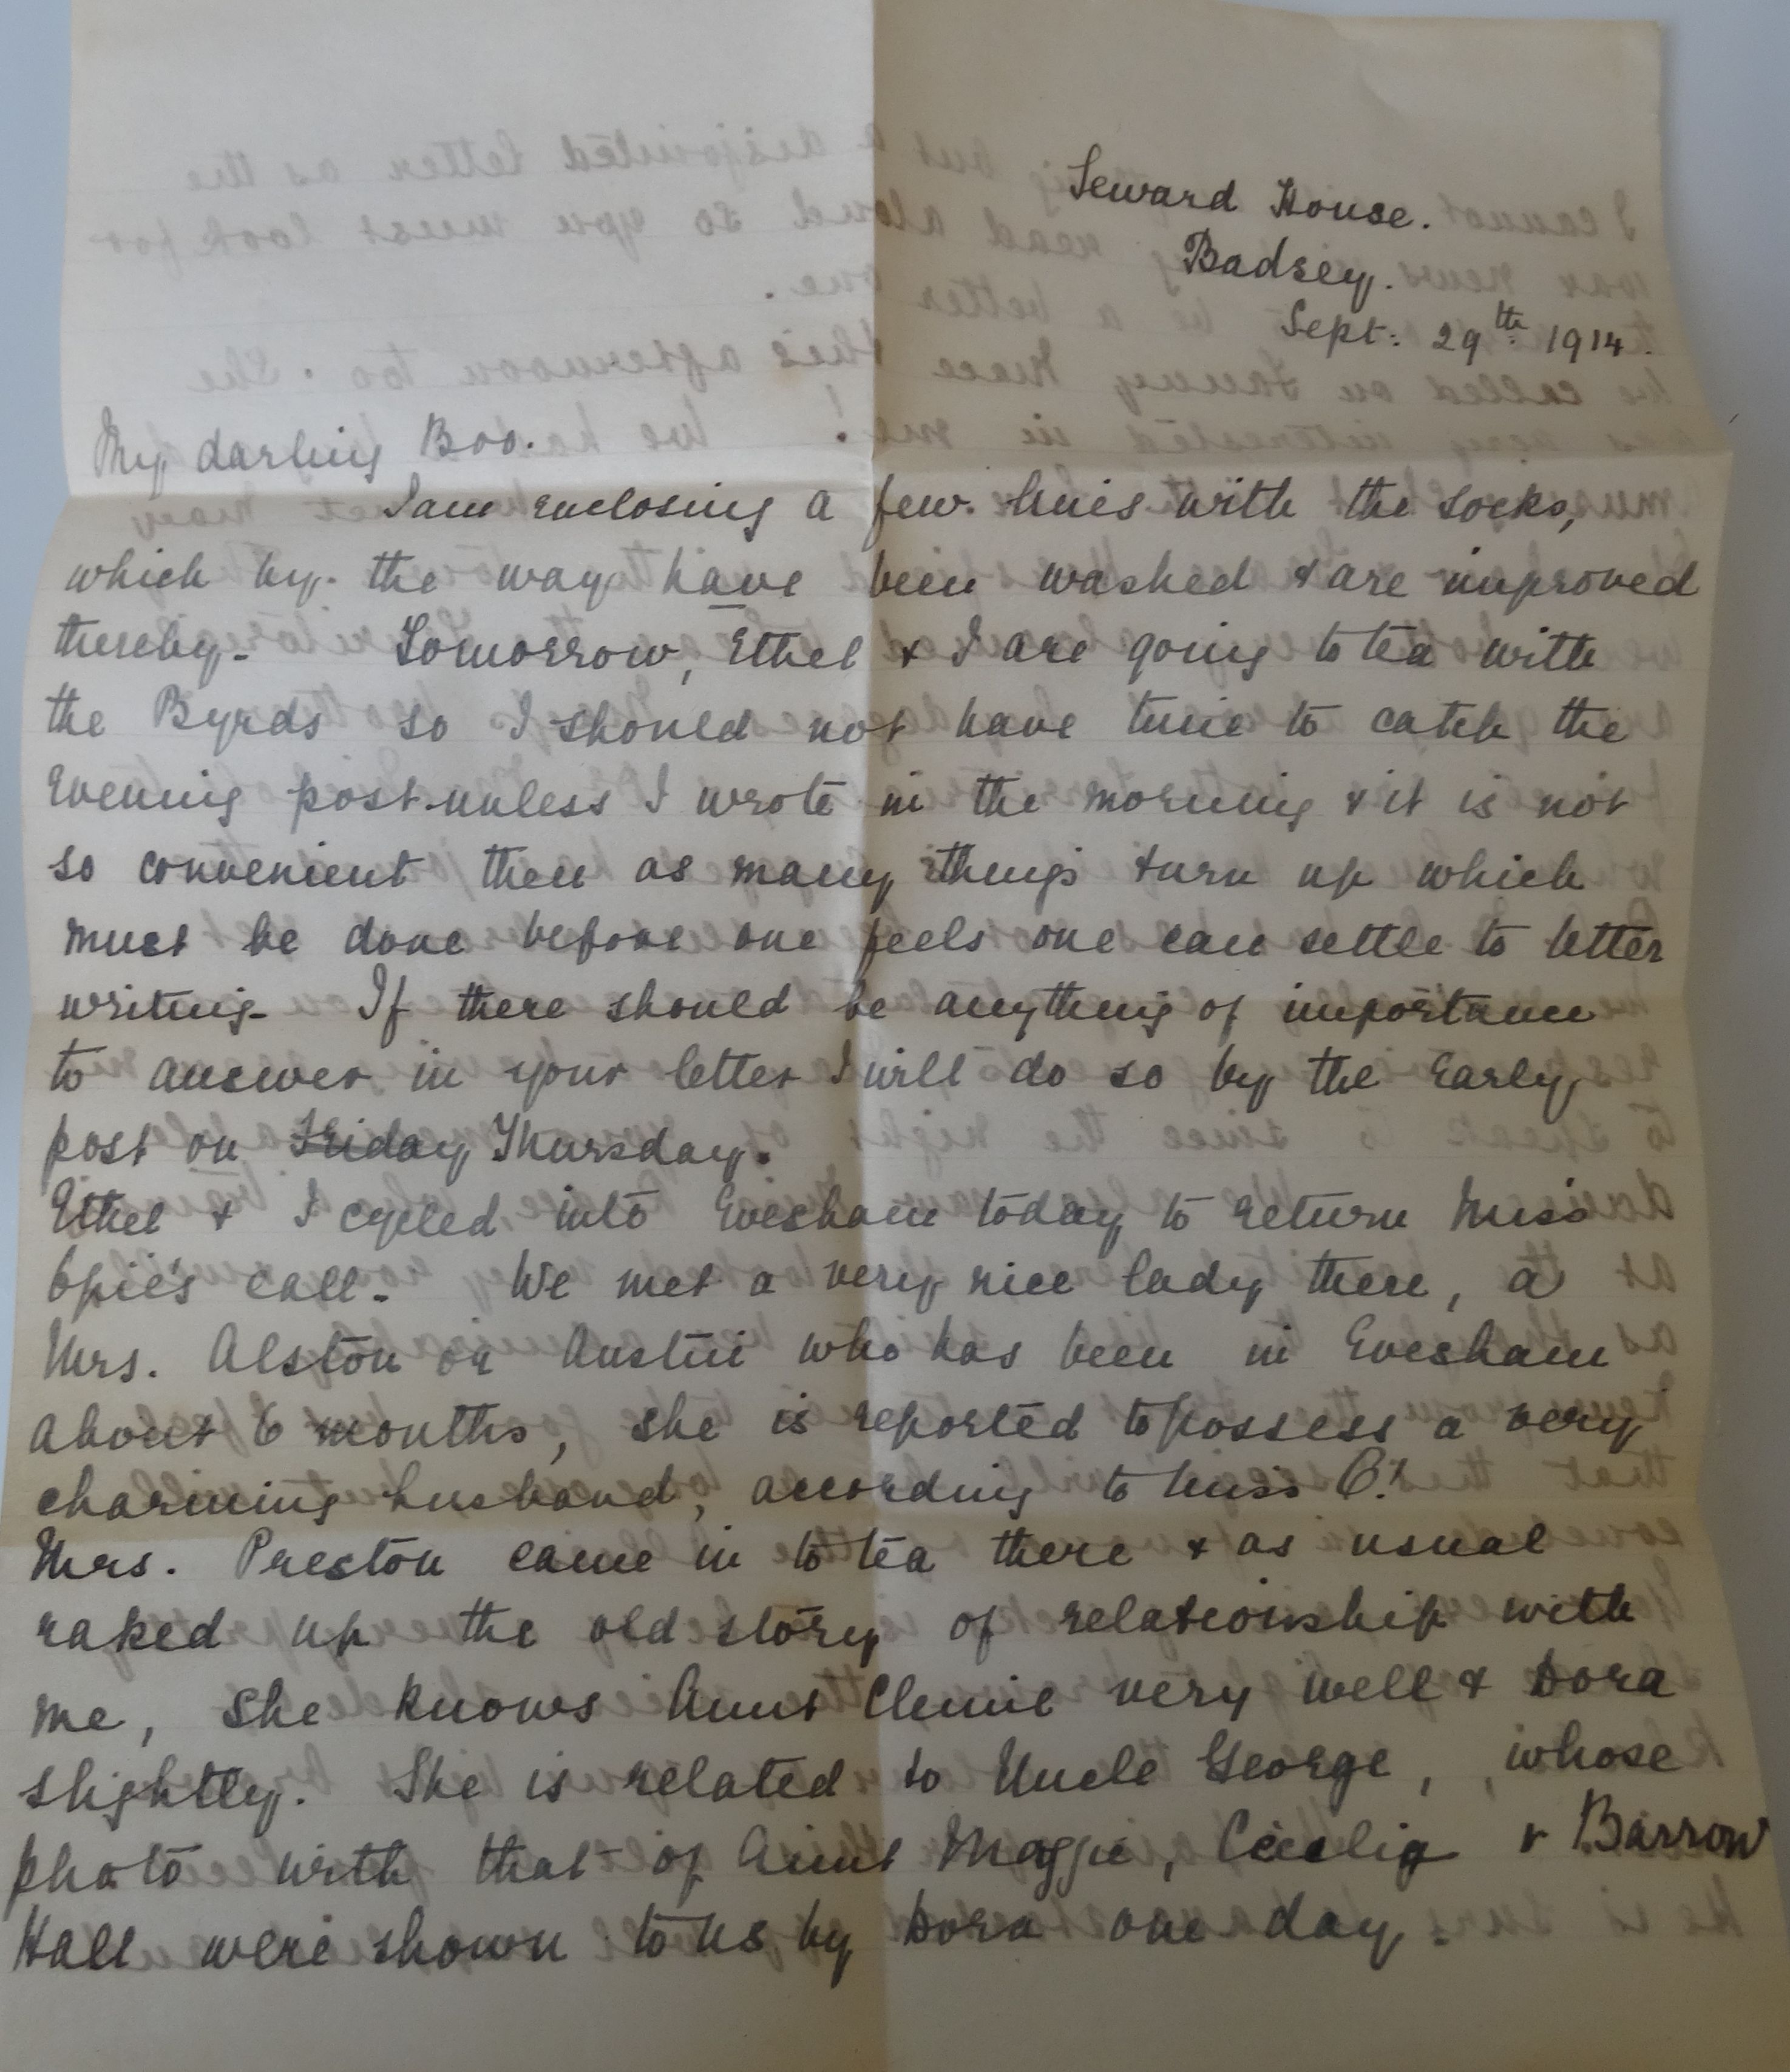 Seward House.
Badsey.
Sept: 29th 1914.
My darling Boo.
I am enclosing a few lines with the socks,
which by the way have been washed & are improved
thereby. Tomorrow, Ethel & I are going to tea with
the Byrds so I should not have time to catch the
evening post unless I wrote in the morning & it is not
so convenient then as many things turn up which
must be done before one feels one can settle to letter
writing. If there should be anything of importance
to answer in your letter I will do so by the early
post on Friday Thursday.
Ethel & I cycled into Evesham today to return Miss
Opie's call. We met a very nice lady there, a
Mrs. Alston or Austin who has been in Evesham
about 6 months, she is reported to possess a very
charming husband, according to Miss O.!
Mrs. Preston came in to tea there & as usual
raked up the old story of relationship with
me, she knows Aunt Clemie very well & Dora
slightly. She is related to Uncle George, whose
photo with that of Aunt Maggie, Cecilia & Barrow
Hall were shown to us by Dora one day.